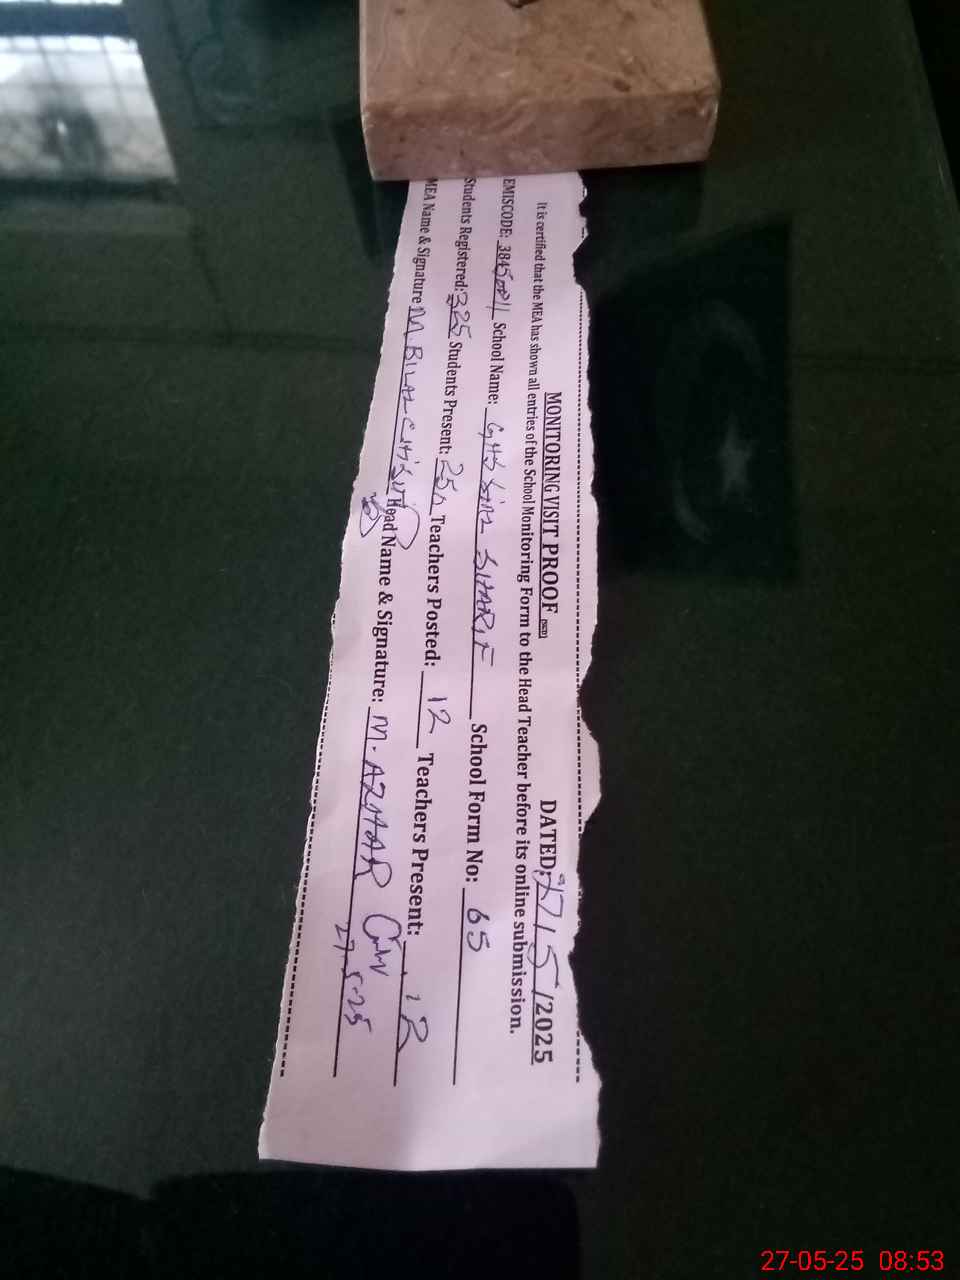 MONITORING VISIT PROOF (SED) DATED: 27/5/2025
It is certified that the MEA has shown all entries of the School Monitoring Form to the Head Teacher before its online submission.
EMISCODE: School Name: GHS SIAL SHARIF School Form No: 65
Students Registered: 325 Students Present: 250 Teachers Posted: 12 Teachers Present: 12
MEA Name & Signature M. BILAL Head Name & Signature: M. AZHAR
27-5-25
27-05-25 08:53